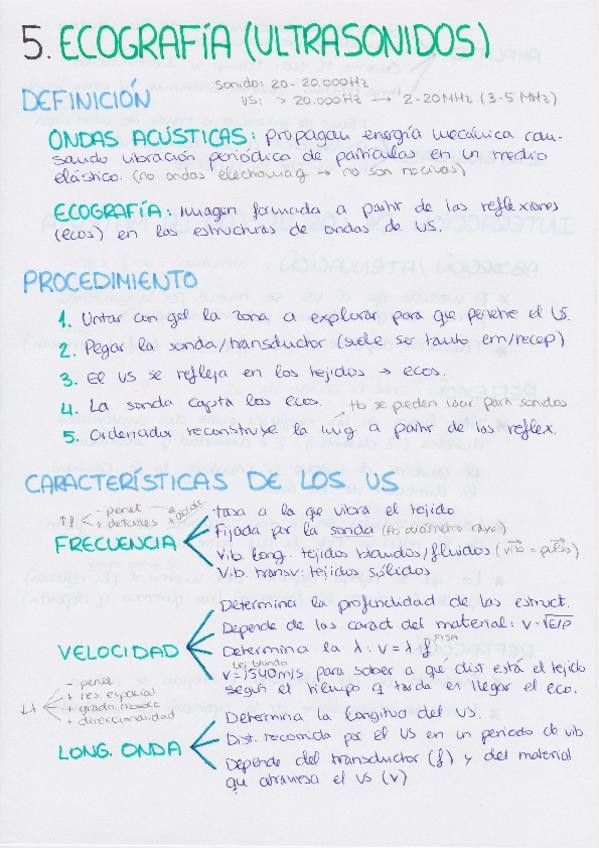 5. ECOGRAFÍA (ULTRASONIDOS)
sonido: 20 - 20.000Hz
US: > 20.000Hz → 2-20MHz (3-5 MHz)
DEFINICIÓN
ONDAS ACÚSTICAS: Propagan energía mecánica cau-
sando vibración periódica de partículas en un medio
elástico. (no ondas electromag → no son nocivas)
ECOGRAFÍA: Imagen formada a partir de las reflexiones
(ecos) en las estructuras de ondas de US.
PROCEDIMIENTO
1. Untar con gel la zona a explorar para que penetre el US.
2. Pegar la sonda/transductor (suele ser tanto em/recep)
3. El US se refleja en los tejidos → ecos.
4. La sonda capta los ecos.
tb se pueden usar para sondas
5. Ordenador reconstruye la img a partir de las reflex.
CARACTERÍSTICAS DE LOS US
↑f < - penet + absorc.
+ detalles
FRECUENCIA
Tasa a la que vibra el tejido
Fijada por la sonda
Vib. long: tejidos blandos/fluidos (vib = pulso)
Vib. transv: tejidos sólidos
VELOCIDAD
Determina la profundidad de las estruct.
Depende de las caract del material: v=√E/ρ
Determina la λ: v = λ f FIJA
tej blando
v=1540m/s para saber a qué dist está el tejido
según el tiempo q tarda en llegar el eco.
- penet
+ res. espacial
+ grado absorc
+ direccionalidad
↓λ
LONG. ONDA
Determina la longitud del US.
Dist. recorrida por el US en un periodo de vib.
Depende del transductor (f) y del material
que atraviesa el US (v)